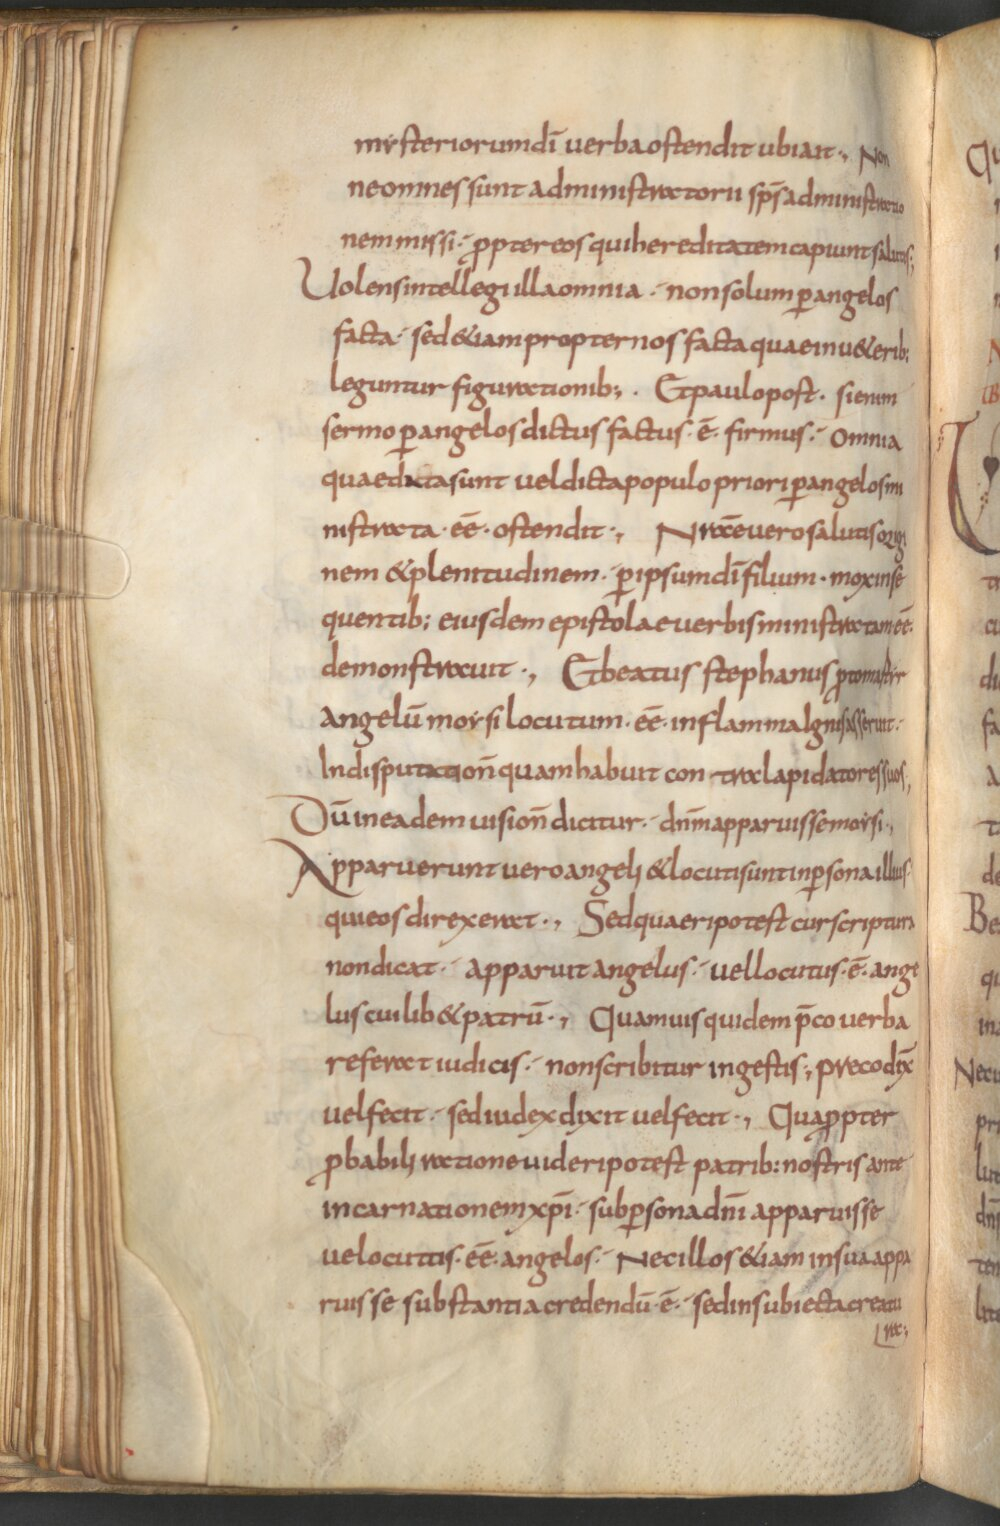 mysteriorum dī verba ostendit ubi ait·, Non
ne omnes sunt administratorii sp̄s administratio
nem missi· ꝓpter eos qui hereditatem capiunt salutis;
Uolens intellegi illa omnia· non solum ꝑ angelos
facta· sed &iam propter nos facta quae in u&erib;
leguntur figurationib;,· Et paulo post· si enim
sermo ꝑ angelos dictus factus·ē· firmus· Omnia
quae dicta sunt vel dicta populo priori ꝑ angelos mi
nistrata·eē· ostendit·, Nra̅e vero salutis origi
nem & plenitudinem· ꝑ ipsum dī filium· mox inse
quentib; eiusdem epistolae verbis ministratam eē·
demonstravit·, Et beatus stephanus ꝓtomartyr
angelū moysi locutum·eē· in flamma ignis asseruit·
In disputation̄ quam habuit contra lapidatores suos,
Dū in eadem vision̄ dicitur· dn̄m apparuisse moysi·,
Apparuerunt vero angeli & locuti sunt in ꝑsona illius·
qui eos direxerat·, Sed quaeri potest cur scriptura
non dicat· apparuit angelus· vel locutus·ē· ange
lus cuilib& patrū·, Quamvis quidem p̄co verba
referat iudicis· non scribitur in gestis·, preco dix̄
vel fecit· sed iudex dixit vel fecit·, Quaꝓpter
ꝓbabili ratione videri potest patrib; nostris ante
incarnationem xp̄i· sub ꝑsona dn̄i apparuisse
ve locutus·eē· angelos· Nec illos &iam in sua appa
ruisse substantia credendū·ē· sed in subiecta creatu
ra;